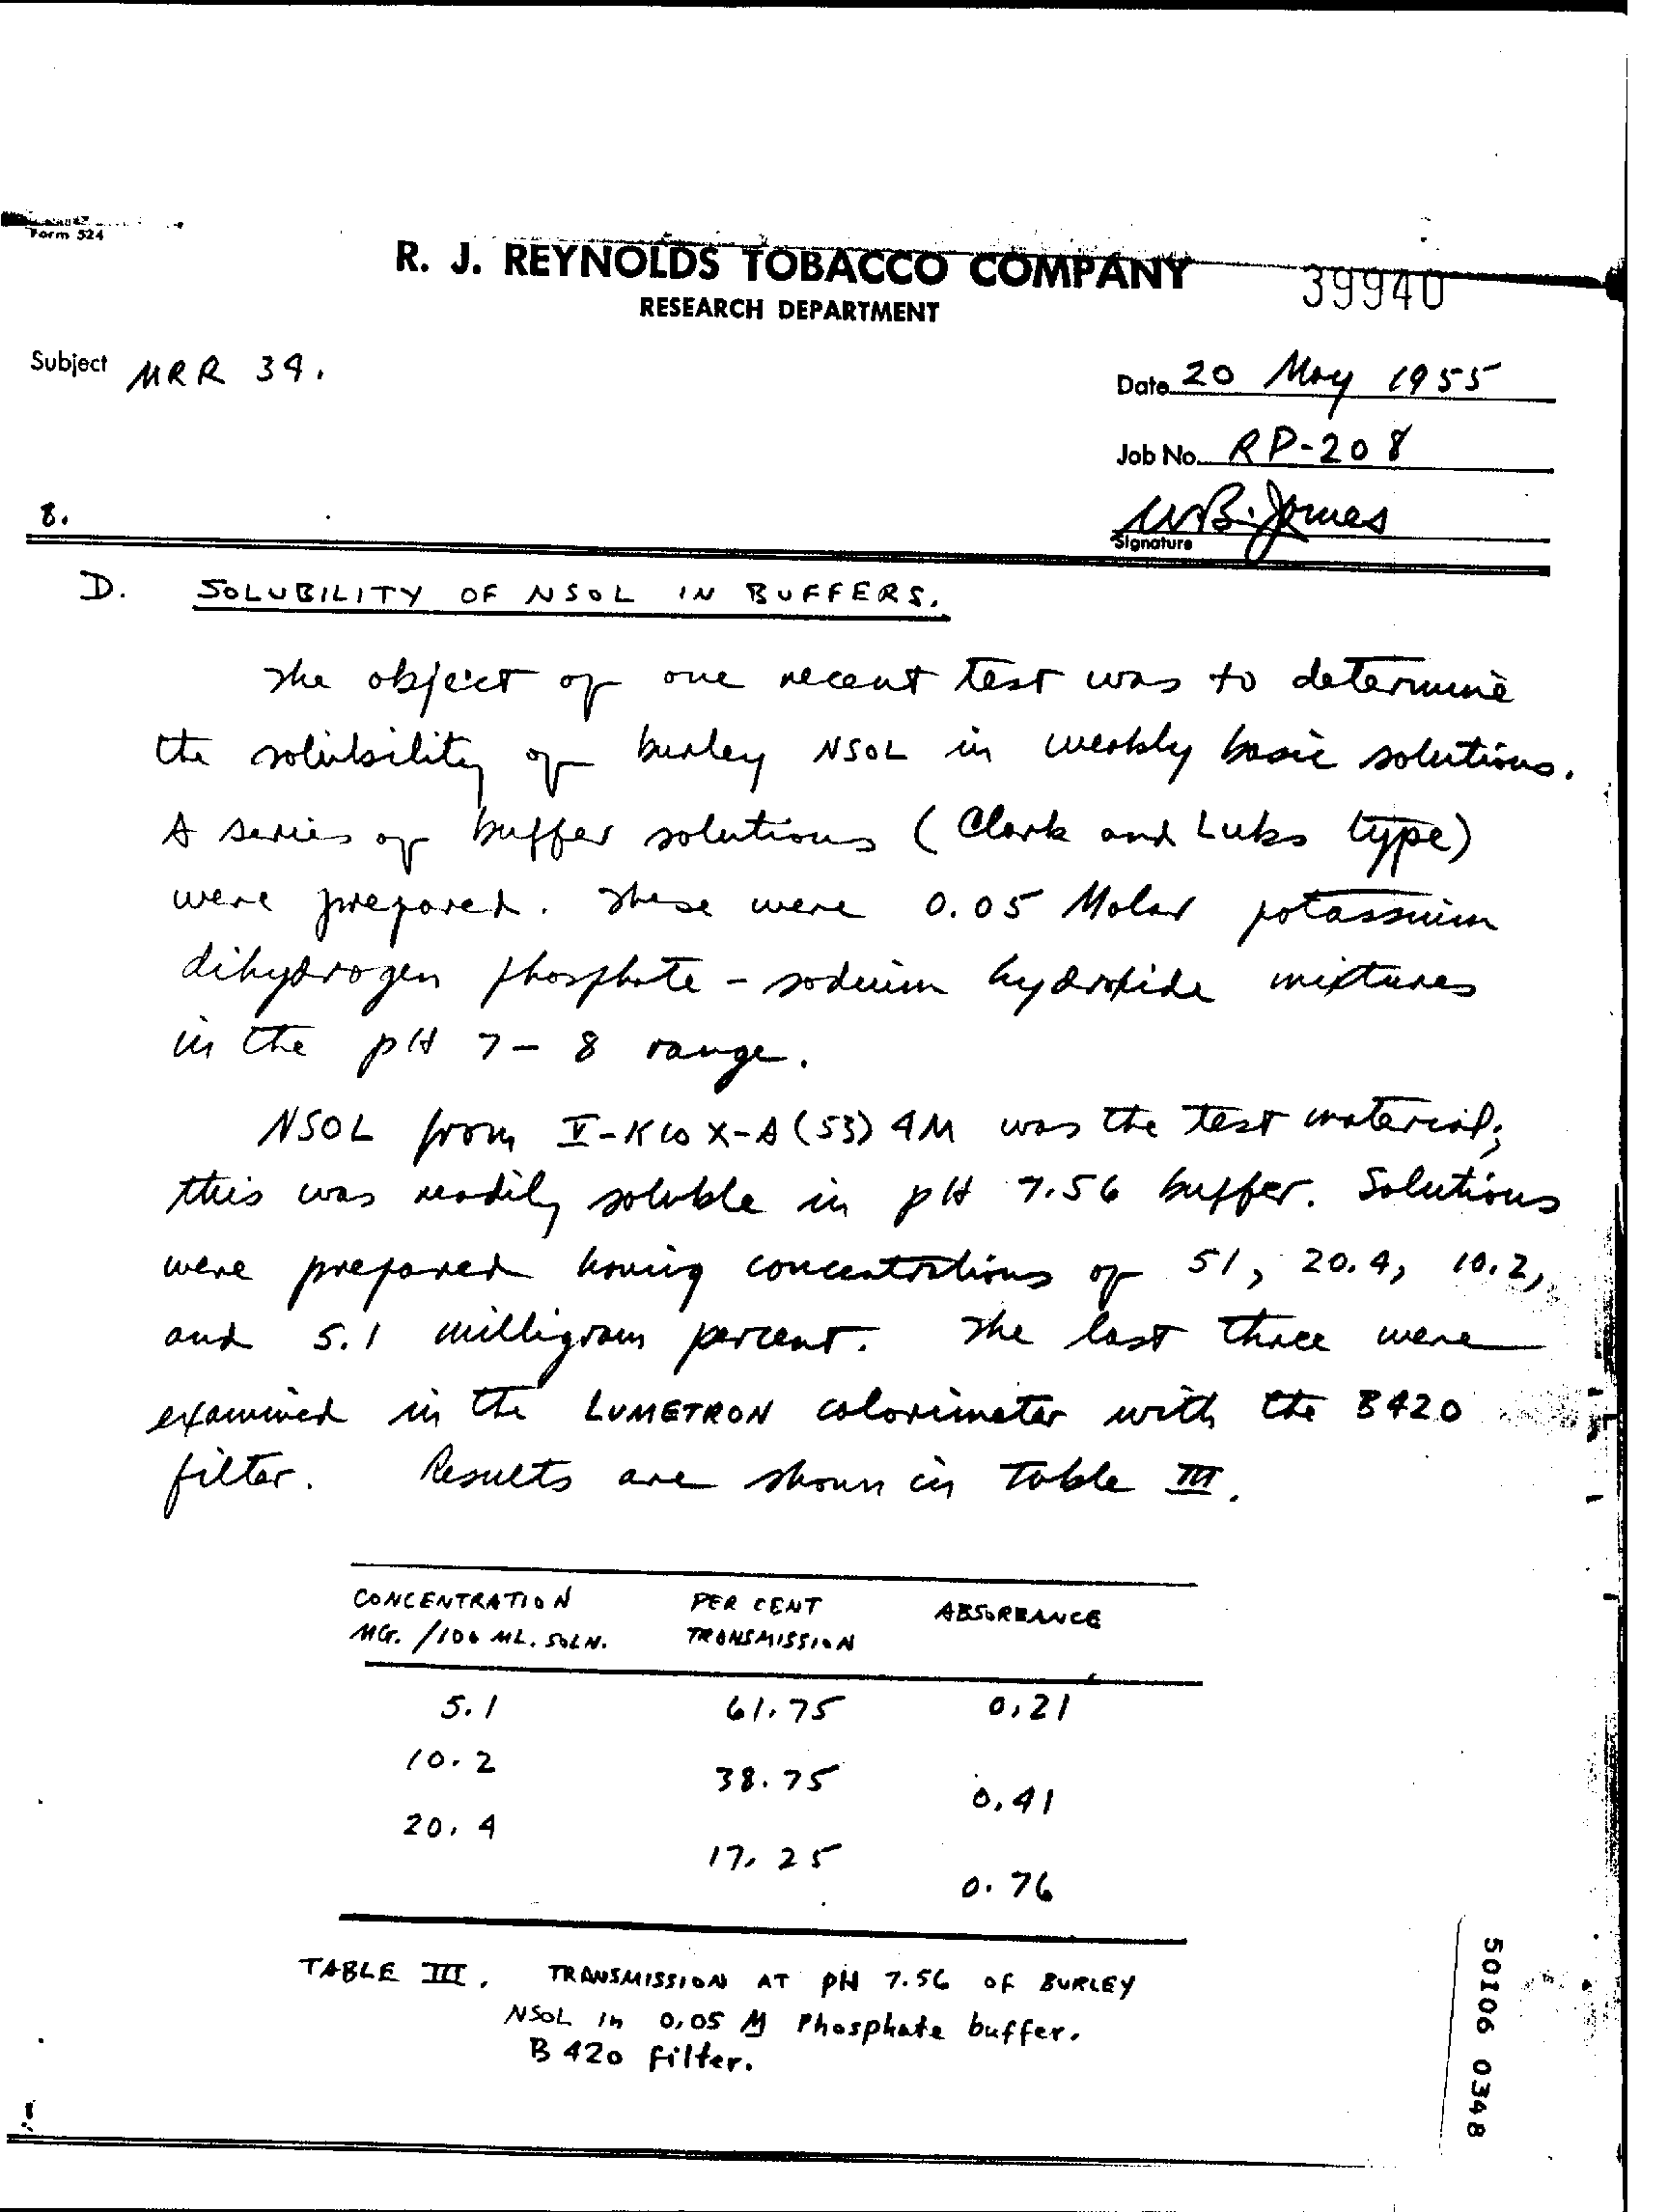 Form 524
R. J. REYNOLDS TOBACCO COMPANY
39940
RESEARCH DEPARTMENT
Subject MRR 34.
Date 20 May 1955
Job No. RP-208
W.B. James
Signature
8.
D. SOLUBILITY OF NSOL IN BUFFERS.
The object of one recent test was to determine
the solubility of burley NSOL in weakly basic solutions.
A series of buffer solutions (Clark and Lubs type)
were prepared. These were 0.05 Molar potassium
dihydrogen phosphate - sodium hydroxide mixtures
in the pH 7 - 8 range.
NSOL from (53) 4M was the test material;
this was readily soluble in pH 7.56 buffer. Solutions
were prepared having concentrations of 51, 20.4, 10.2,
and 5.1 milligram percent. The last three were
examined in the LUMETRON colorimeter with the B420
filter. Results are shown in Table III.
CONCENTRATION PER CENT ABSORBANCE
MG. /100 ML. SOLN. TRANSMISSION
5.1 61.75 0.21
10.2 38.75 0.41
20.4 17.25 0.76
TABLE III. TRANSMISSION AT pH 7.56 OF BURLEY
NSOL in 0.05 M Phosphate buffer.
B 420 filter.
50106 0348